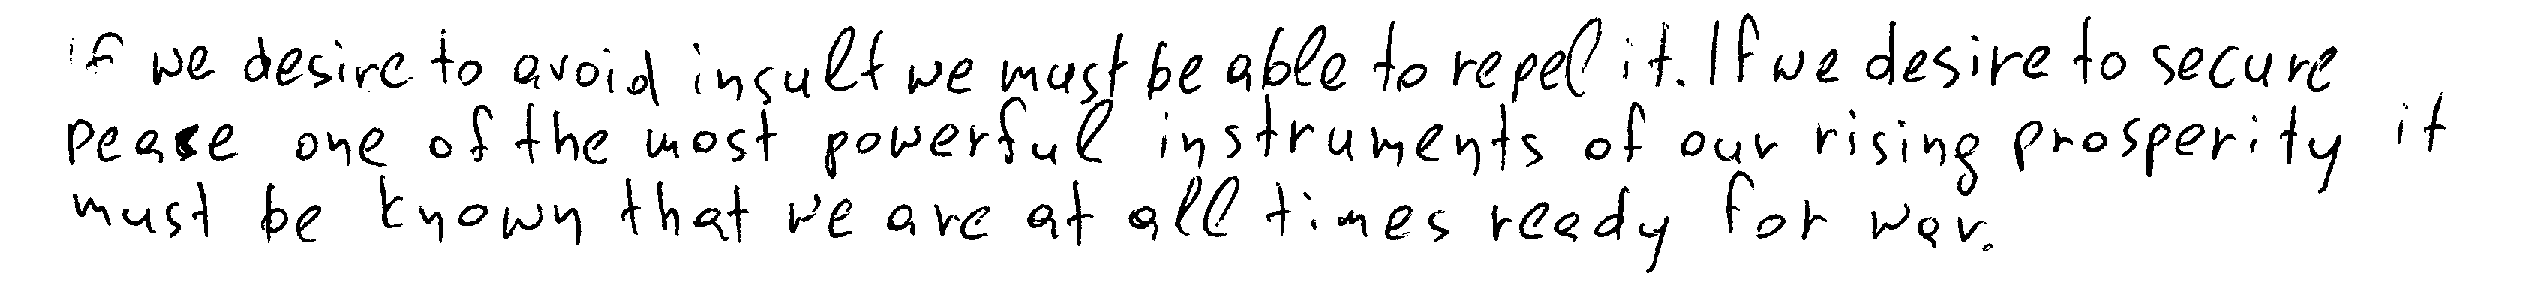 if we desire to avoid insult we must be able to repel it. If we desire to secure
peace one of the most powerful instruments of our rising prosperity it
must be known that we are at all times ready for war.